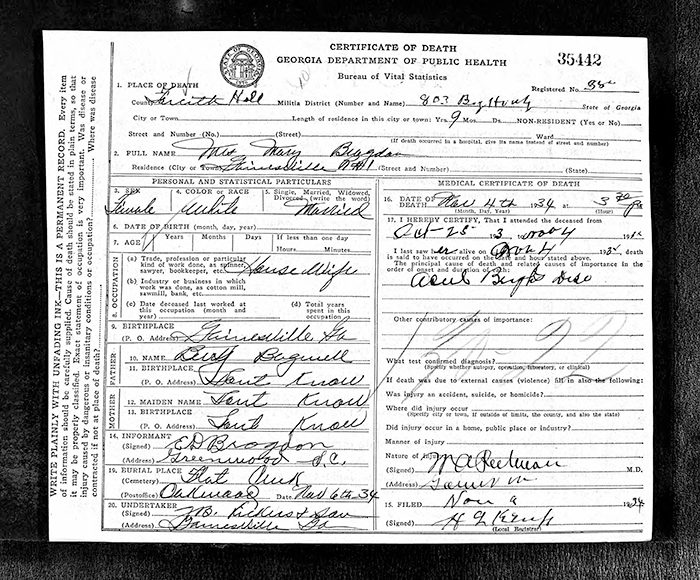 CERTIFICATE OF DEATH
GEORGIA DEPARTMENT OF PUBLIC HEALTH
Bureau of Vital Statistics
35442
Registered No.
1. PLACE OF DEATH
County Hall Militia District (Number and Name) 803 State of Georgia
City or Town Length of residence in this city or town: Yrs. 9 Mos. Ds. NON-RESIDENT (Yes or No)
Street and Number (No.) (Street) Ward
(If death occurred in a hospital, give its name instead of street and number)
2. FULL NAME Mrs Mary Bragdon
Residence (City or Town) Gainesville (Street and Number) (State)
PERSONAL AND STATISTICAL PARTICULARS
3. SEX 4. COLOR or RACE 5. Single, Married, Widowed, Divorced (write the word)
Female White Married
6. DATE OF BIRTH (month, day, year)
7. AGE Years Months Days If less than one day
Hours Minutes
8. OCCUPATION
(a) Trade, profession or particular kind of work done, as spinner, sawyer, bookkeeper, etc. House Wife
(b) Industry or business in which work was done, as cotton mill, sawmill, bank, etc.
(c) Date deceased last worked at this occupation (month and year)
(d) Total years spent in this occupation
9. BIRTHPLACE
(P. O. Address) Gainesville Ga
FATHER
10. NAME Bagwell
11. BIRTHPLACE
(P. O. Address) Dont Know
MOTHER
12. MAIDEN NAME Dont Know
13. BIRTHPLACE
(P. O. Address) Dont Know
14. INFORMANT
(Signed) E D Bragdon
(Address) Greenwood S.C.
19. BURIAL PLACE
(Cemetery) Flat Creek
(Postoffice) Oakwood Date Nov 6th 34
20. UNDERTAKER
(Signed)
(Address) Gainesville Ga
MEDICAL CERTIFICATE OF DEATH
16. DATE OF DEATH Nov 4th 1934 at 3
(Month, Day, Year) (Hour)
17. I HEREBY CERTIFY, That I attended the deceased from
Oct - 25 Nov 4
I last saw her alive on Nov 4 death
is said to have occurred on the date and hour stated above.
The principal cause of death and related causes of importance in order of onset and duration of each:
Other contributory causes of importance:
What test confirmed diagnosis?
(Specify whether autopsy, operation, laboratory, or clinical)
If death was due to external causes (violence) fill in also the following:
Was injury an accident, suicide, or homicide?
Where did injury occur
(Specify city or town, if outside of limits, the county, and also the state)
Did injury occur in a home, public place or industry?
Manner of injury
Nature of injury
(Signed) M.D.
(Address)
15. FILED Nov 1934
(Signed)
(Local Registrar)
WRITE PLAINLY WITH UNFADING INK—THIS IS A PERMANENT RECORD. Every item
of information should be carefully supplied. Cause of death should be stated in plain terms, so that
it may be properly classified. Exact statement of occupation is very important. Was disease or
injury caused by dangerous or insanitary conditions or occupation? Where was disease
contracted if not at place of death?